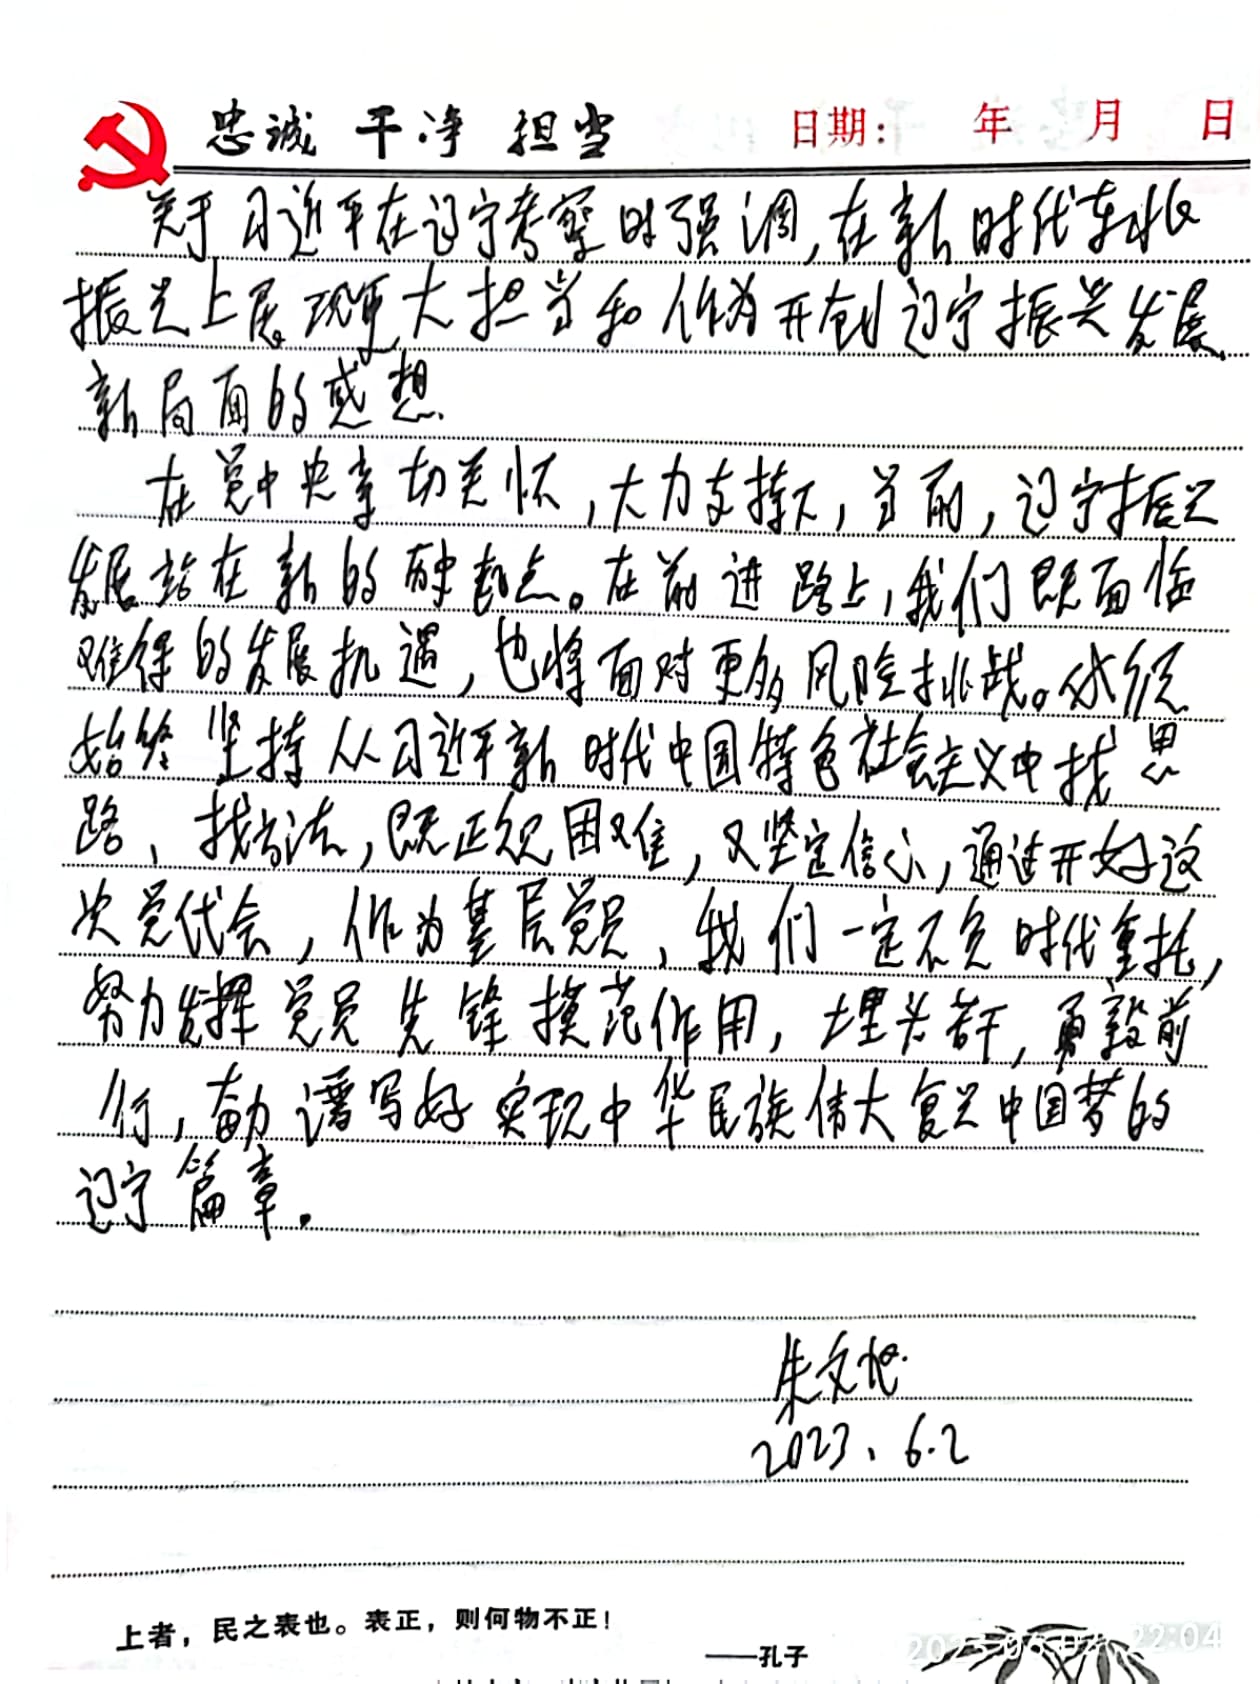 忠诚 干净 担当 日期： 年 月 日
关于习近平在辽宁考察时强调,在新时代东北
振兴上展现更大担当和作为开创辽宁振兴发展
新局面的感想.
在党中央亲切关怀,大力支持下,当前,辽宁振兴
发展站在新的历史起点。在前进路上,我们既面临
难得的发展机遇,也将面对更多风险挑战。必须
始终坚持从习近平新时代中国特色社会主义中找思
路、找方法,既正视困难,又坚定信心,通过开好这
次党代会,作为基层党员,我们一定不负时代重托,
努力发挥党员先锋模范作用,埋头苦干,勇毅前
行,奋力谱写好实现中华民族伟大复兴中国梦的
辽宁篇章。
朱文
2023、6.2
上者，民之表也。表正，则何物不正！
——孔子
22:04